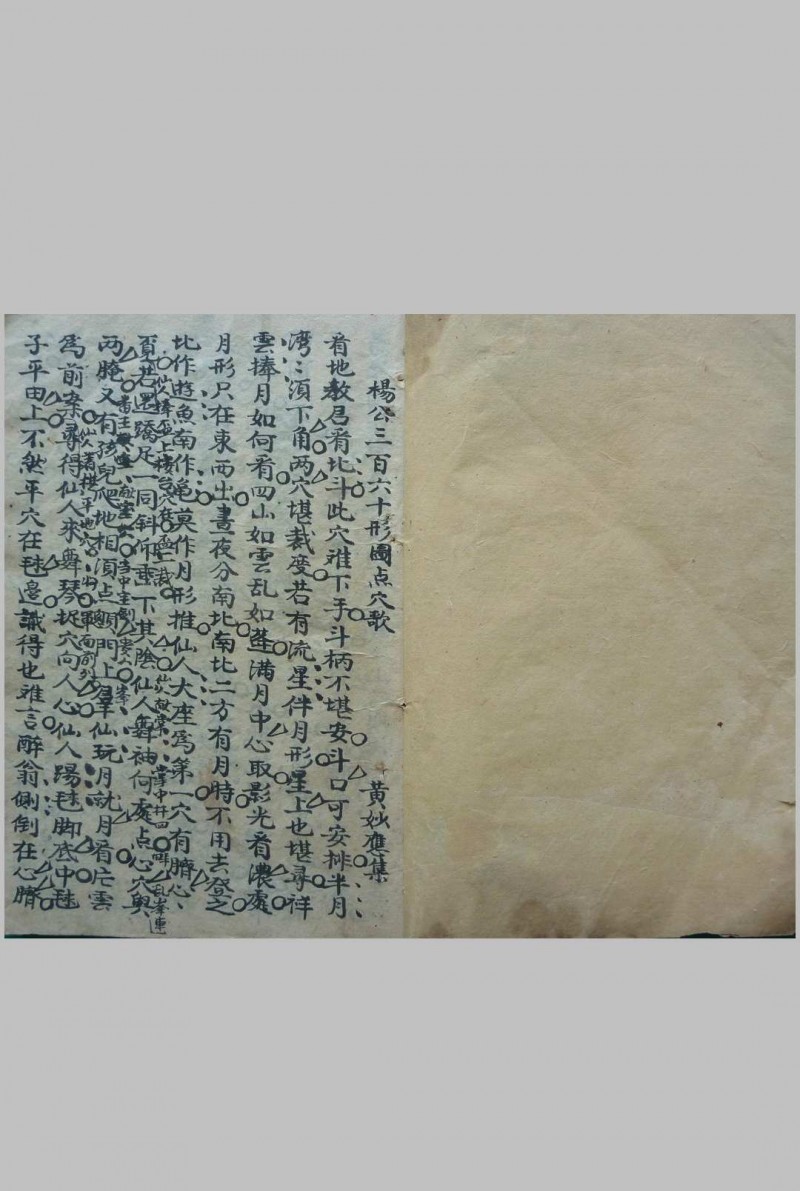 楊公三百六十形圖点穴歌 黄妙應集
看地教君看北斗此穴难下手斗柄不堪安斗口可安排半月
湾〻須下角两穴堪裁度若有流星伴月形星上也堪尋祥
雲捧月如何看四山如雲乱如蓬滿月中心取影光看濃處
月形只在東西出晝夜分南北南北二方有月時不用去登之
北作遊魚南作龟莫作月形推仙人大座為第一穴有臍心
若還蹺足一同斜仰垂下其陰仙人舞袖何處点心穴與
两腌又有孩兒爬地相須点顖門上羣仙玩月就月看片雲
為前案尋得仙人來舞琴捉穴向人心仙人踢毬脚底中毬
子平田上不然平穴在毬邊識得也难言醉翁側倒在心臍